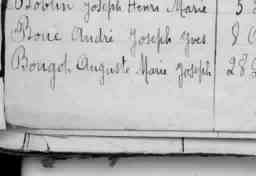 Boblin Joseph Henri Marie 3
Boué André Joseph Yves 8
Bougot Auguste Marie Joseph 28